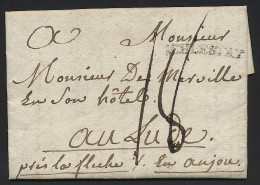 A Monsieur
Monsieur De Merville
En Son hôtel
18
au Lude.
près la fleche &. En anjou.